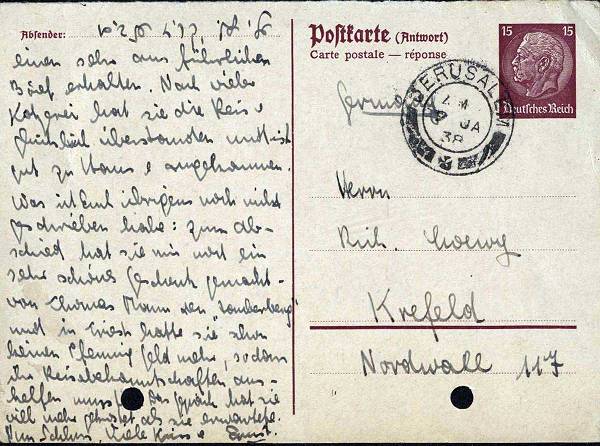 Absender:
einen sehr ausführlichen
Brief erhalten. Nach vieler
Kotzerei hat sie die Reise
glücklich überstanden und ist
gut zu Hause angekommen.
Was ich Euch übrigens noch nicht
geschrieben habe: zum Ab-
schied hat sie mir noch ein
sehr schönes Geschenk gemacht -
von Thomas Mann den "Zauberberg"
und in Triest hatte sie schon
keinen Pfennig Geld mehr, sodass
ihr Reisebekanntschaften aus-
helfen mussten. Das hat sie
viel mehr gekostet als sie erwartete.
Zum Schluss, viele Küsse Ernst.
Postkarte (Antwort)
Carte postale — réponse
15 15
Deutsches Reich
JERUSALEM
AM
JA
38
Germany
Herrn
Rich. Loewy
Krefeld
Nordwall 117